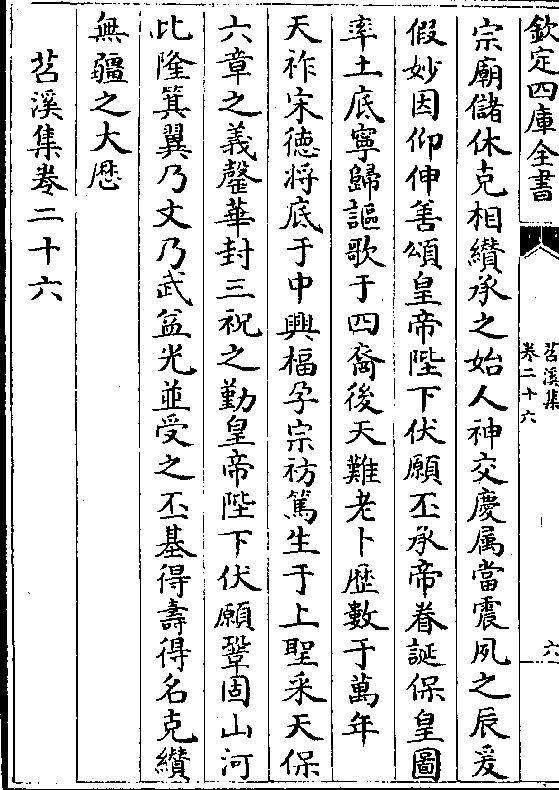 欽定四庫全書
苕溪集
卷二十六
六
宗廟儲休克相纉承之始人神交慶属當震夙之辰爰
假妙因仰伸善頌皇帝陛下伏願丕承帝眷誕保皇圖
率土底寧歸謳歌于四裔後天難老卜歴數于萬年
天祚宋徳将底于中興楅孕宗祊篤生于上聖采天保
六章之義罄華封三祝之勤皇帝陛下伏願鞏固山河
比隆箕翼乃文乃武益光並受之丕基得壽得名克纉
無疆之大厯
苕溪集卷二十六